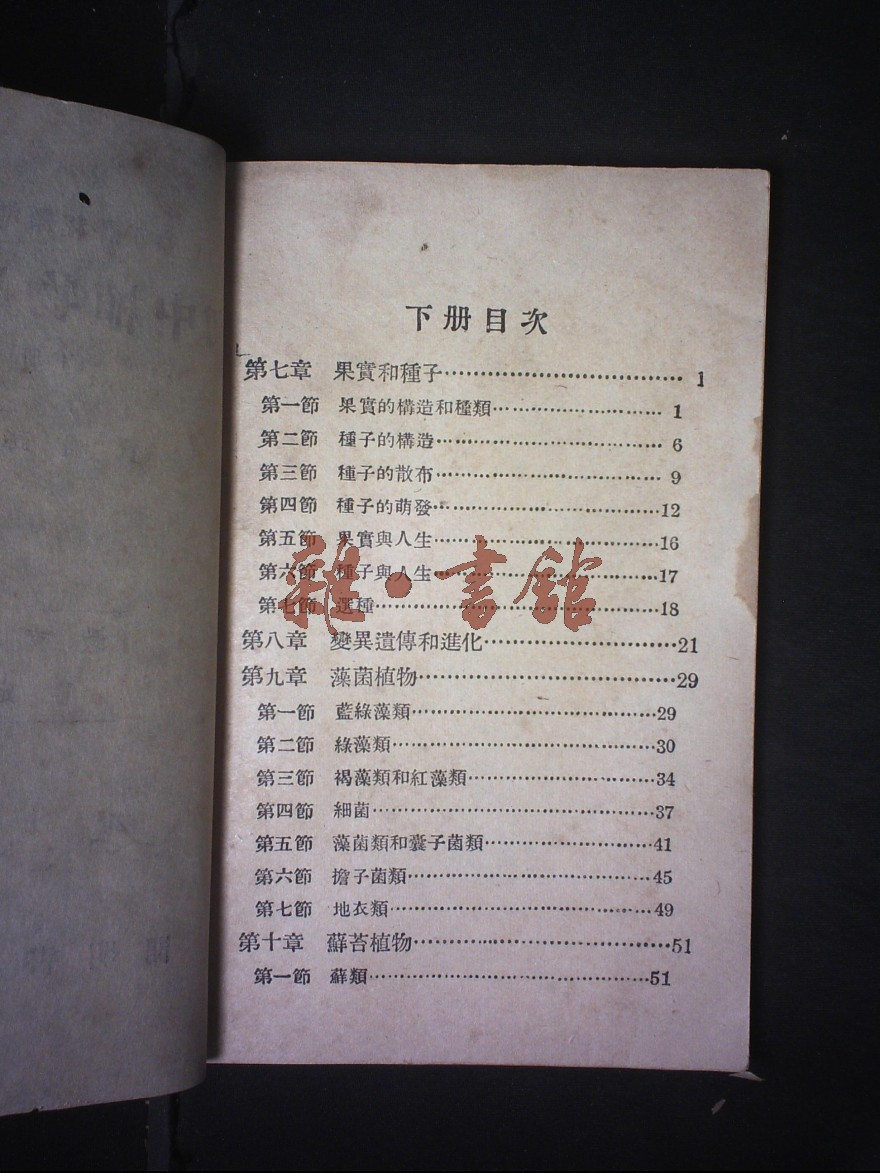 下册目次
第七章 果實和種子……………………………… 1
第一節 果實的構造和種類……………………… 1
第二節 種子的構造……………………………… 6
第三節 種子的散布……………………………… 9
第四節 種子的萌發………………………………12
第五節 果實與人生………………………………16
第六節 種子與人生………………………………17
第七節 選種………………………………………18
第八章 變異遺傳和進化…………………………21
第九章 藻菌植物…………………………………29
第一節 藍綠藻類…………………………………29
第二節 綠藻類……………………………………30
第三節 褐藻類和紅藻類…………………………34
第四節 細菌………………………………………37
第五節 藻菌類和囊子菌類………………………41
第六節 擔子菌類…………………………………45
第七節 地衣類……………………………………49
第十章 蘚苔植物…………………………………51
第一節 蘚類………………………………………51
雜·書館